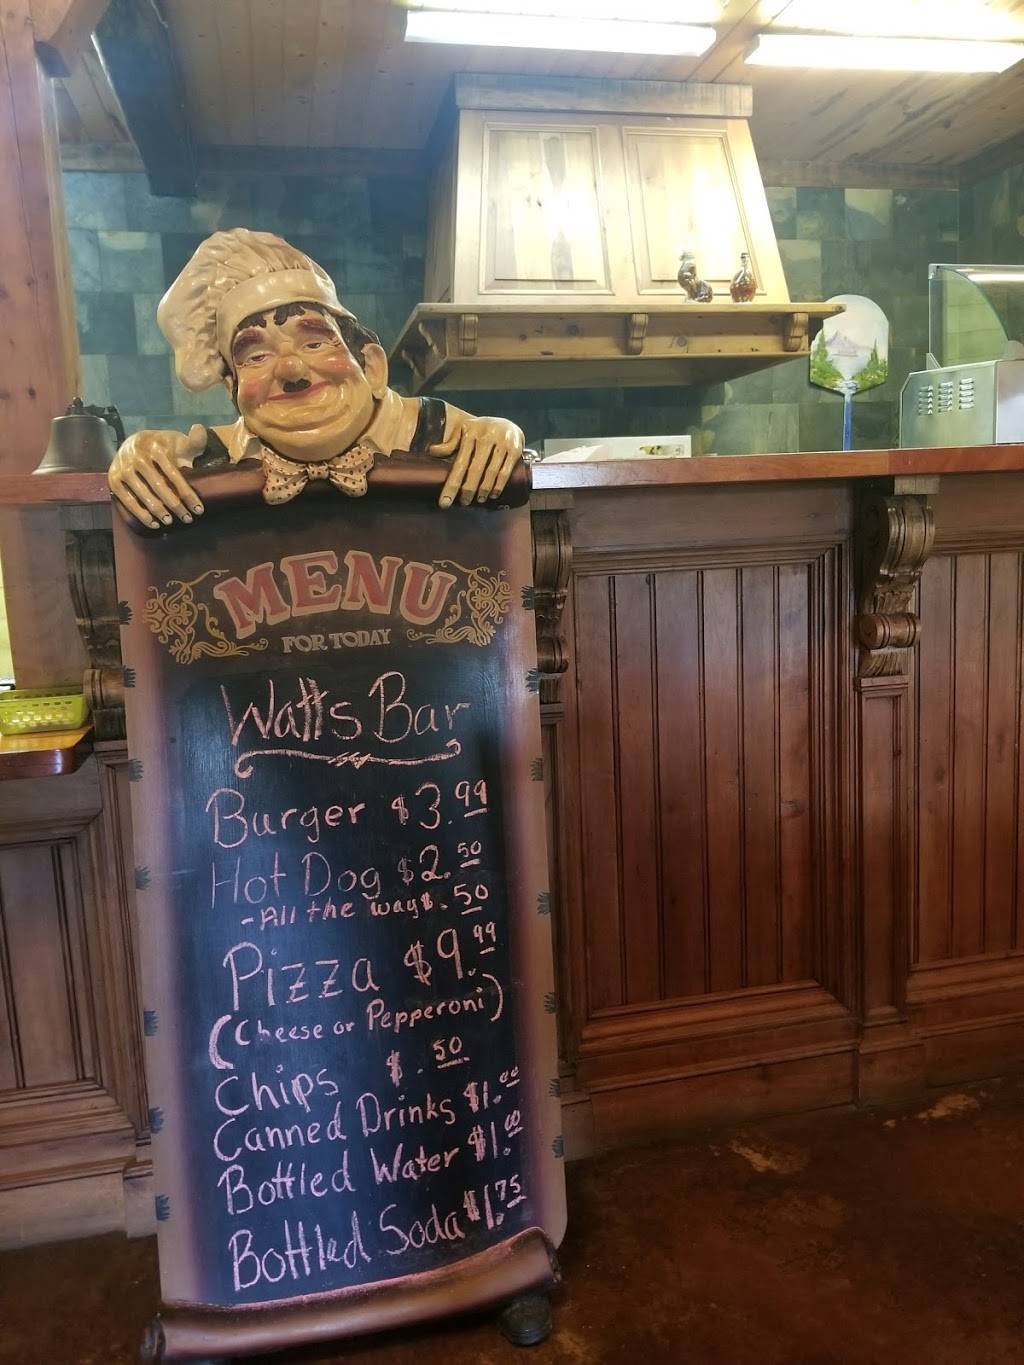 MENU
FOR TODAY
Watts Bar
Burger $3.99
Hot Dog $2.50
-All the way $.50
Pizza $9.99
(Cheese or Pepperoni)
Chips $.50
Canned Drinks $1.00
Bottled Water $1.00
Bottled Soda $1.75